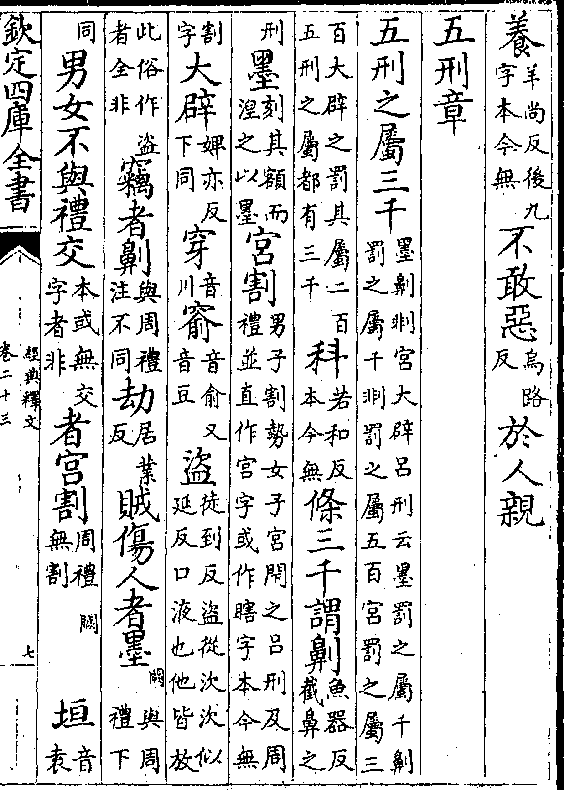 養羊尚反後九字本今無不敢惡烏路反於人親
五刑章
五刑之屬三千墨劓剕宮大辟呂刑云墨罰之屬千劓罰之屬千剕罰之屬五百宮罰之屬三
百大辟之罰其屬二百五刑之屬都有三千科若和反本今無條三千謂劓魚器反截鼻之
刑墨刻其額而涅之以墨宮割男子割勢女子宮閉之呂刑及周禮並直作宮字或作瞎字本今無
割字大辟婢亦反下同穿音川窬音俞又音豆盜徒到反盜從次次似延反口液也他皆放
此俗作盜者全非竊者劓與周禮注不同劫居業反賊傷人者墨闕與周禮下
同男女不與禮交本或無交字者非者宮割周禮無割闕垣音袁
欽定四庫全書
經典釋文
卷二十三
七